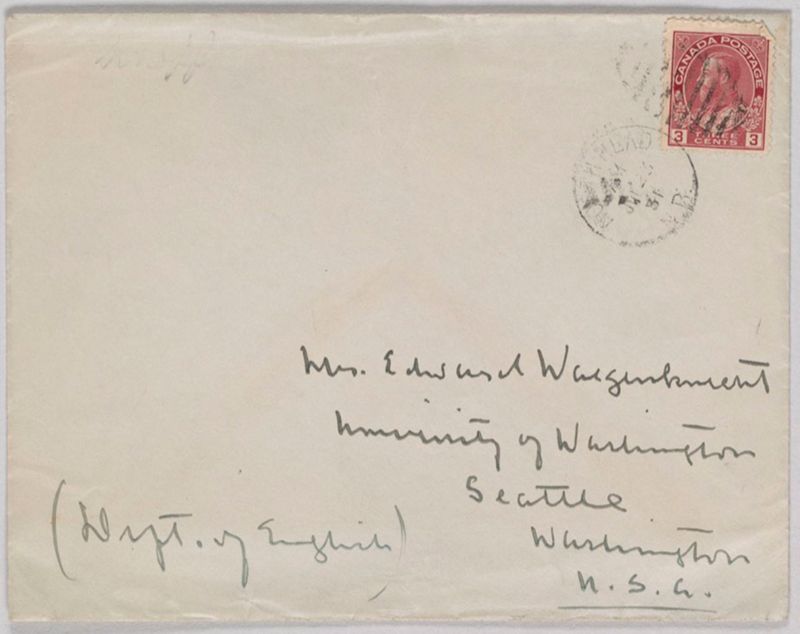 CANADA POSTAGE
3 THREE 3
CENTS
NORTH HEAD
N.B.
31
Mrs. Edward Wagenknecht
University of Washington
Seattle
Washington
U.S.A.
(Dept. of English)